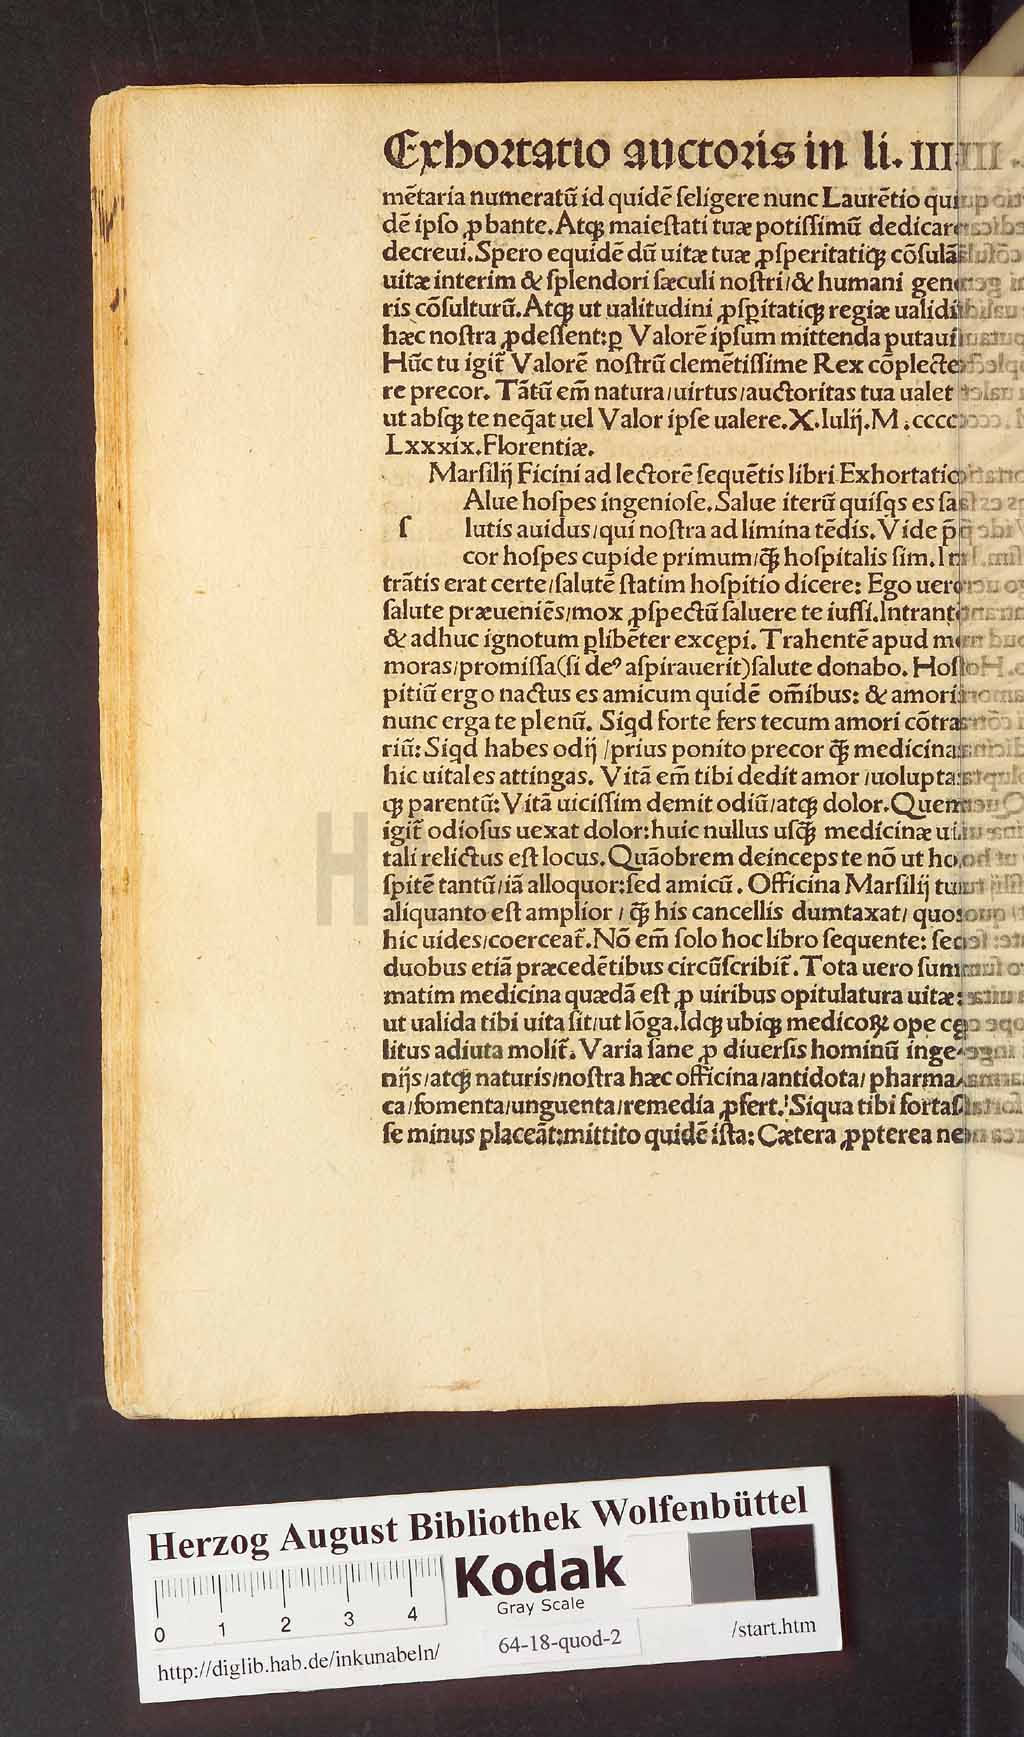 Exhortatio auctoris in li. III
mētaria numeratū id quidē ſeligere nunc Laurētio qui
dē ipſo ꝓbante. Atqꝫ maieſtati tuæ potiſſimū dedicare
decreui. Spero equidē dū uitæ tuæ ꝓſperitatiqꝫ cōſulā
uitæ interim & ſplendori ſæculi noſtri/& humani gene
ris cōſulturū. Atqꝫ ut ualitudini ꝓſꝑitatiqꝫ regiæ ualidi
hæc noſtra ꝓdeſſent: ꝑ Valorē ipſum mittenda putaui
Hūc tu igit̄ Valorē noſtrū clemētiſſime Rex cōplecte
re precor. Tātū em̄ natura/uirtus/auctoritas tua ualet
ut abſqꝫ te neq̄at uel Valor ipſe ualere. X. Iulij. M. cccc
Lxxxix. Florentiæ.
Marſilij Ficini ad lectorē ſequētis libri Exhortatio
Alue hoſpes ingenioſe. Salue iterū quiſqs es ſa
ſ lutis auidus/qui noſtra ad limina tēdis. Vide p̄
cor hoſpes cupide primum/q̄ꝫ hoſpitalis ſim. In
trātis erat certe/ſalutē ſtatim hoſpitio dicere: Ego uero
ſalute præueniēs/mox ꝓſpectū ſaluere te iuſſi. Intrant
& adhuc ignotum ꝑlibēter excępi. Trahentē apud me
moras/promiſſa(ſi deꝰ aſpirauerit)ſalute donabo. Hoſ
pitiū ergo nactus es amicum quidē om̄ibus: & amori
nunc erga te plenū. Siqd forte fers tecum amori cōtra
riū: Siqd habes odij /prius ponito precor q̄ꝫ medicina
hic uitales attingas. Vitā em̄ tibi dedit amor /uolupta
qꝫ parentū: Vitā uiciſſim demit odiū/atqꝫ dolor. Quem
igit̄ odioſus uexat dolor: huic nullus uſq̄ꝫ medicinæ ui
tali relictus eſt locus. Quāobrem deinceps te nō ut ho
ſpitē tantū/iā alloquor: ſed amicū. Officina Marſilij tui
aliquanto eſt amplior / q̄ꝫ his cancellis dumtaxat/ quos
hic uides/coerceat̄. Nō em̄ ſolo hoc libro ſequente: ſed
duobus etiā præcedētibus circūſcribit̄. Tota uero ſum
matim medicina quædā eſt ꝓ uiribus opitulatura uitæ:
ut ualida tibi uita ſit/ut lōga. Idqꝫ ubiqꝫ medicoꝝ ope cę
litus adiuta molit̄. Varia ſane ꝓ diuerſis hominū inge
nijs/atqꝫ naturis/noſtra hæc officina/antidota/ pharma
ca/fomenta/unguenta/remedia ꝓfert. Siqua tibi fortaſ
ſe minus placeāt: mittito quidē iſta: Cætera ꝓpterea ne
Herzog August Bibliothek Wolfenbüttel
Kodak
Gray Scale
0 1 2 3 4
http://diglib.hab.de/inkunabeln/
64-18-quod-2
/start.htm